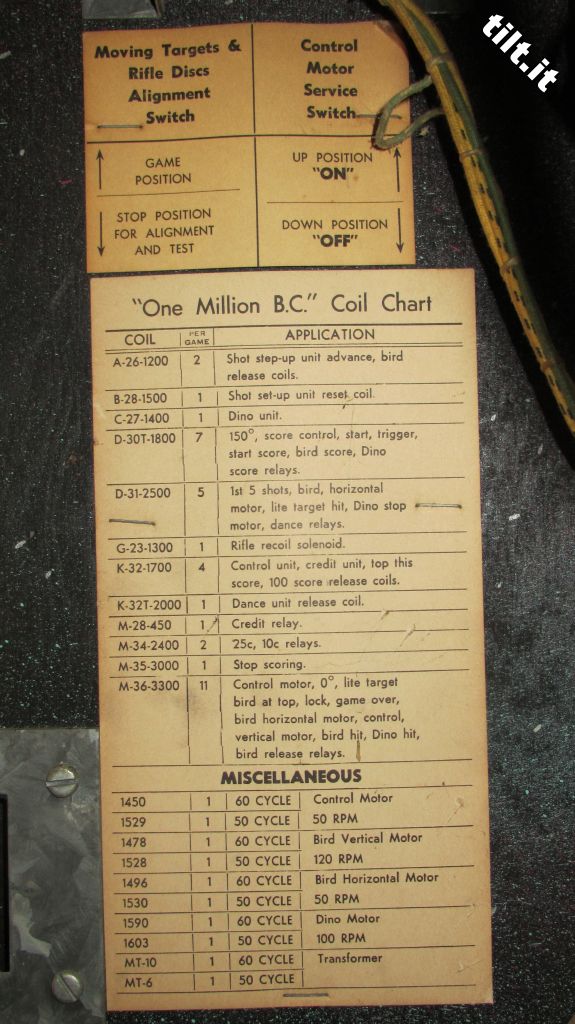 tilt.it
Moving Targets &
Rifle Discs
Alignment
Switch
Control
Motor
Service
Switch
GAME
POSITION
UP POSITION
"ON"
STOP POSITION
FOR ALIGNMENT
AND TEST
DOWN POSITION
"OFF"
"One Million B.C." Coil Chart
COIL PER GAME APPLICATION
A-26-1200 2 Shot step-up unit advance, bird
release coils.
B-28-1500 1 Shot set-up unit reset coil.
C-27-1400 1 Dino unit.
D-30T-1800 7 150°, score control, start, trigger,
start score, bird score, Dino
score relays.
D-31-2500 5 1st 5 shots, bird, horizontal
motor, lite target hit, Dino stop
motor, dance relays.
G-23-1300 1 Rifle recoil solenoid.
K-32-1700 4 Control unit, credit unit, top this
score, 100 score release coils.
K-32T-2000 1 Dance unit release coil.
M-28-450 1 Credit relay.
M-34-2400 2 25c, 10c relays.
M-35-3000 1 Stop scoring.
M-36-3300 11 Control motor, 0°, lite target
bird at top, lock, game over,
bird horizontal motor, control,
vertical motor, bird hit, Dino hit,
bird release relays.
MISCELLANEOUS
1450 1 60 CYCLE Control Motor
1529 1 50 CYCLE 50 RPM
1478 1 60 CYCLE Bird Vertical Motor
1528 1 50 CYCLE 120 RPM
1496 1 60 CYCLE Bird Horizontal Motor
1530 1 50 CYCLE 50 RPM
1590 1 60 CYCLE Dino Motor
1603 1 50 CYCLE 100 RPM
MT-10 1 60 CYCLE Transformer
MT-6 1 50 CYCLE